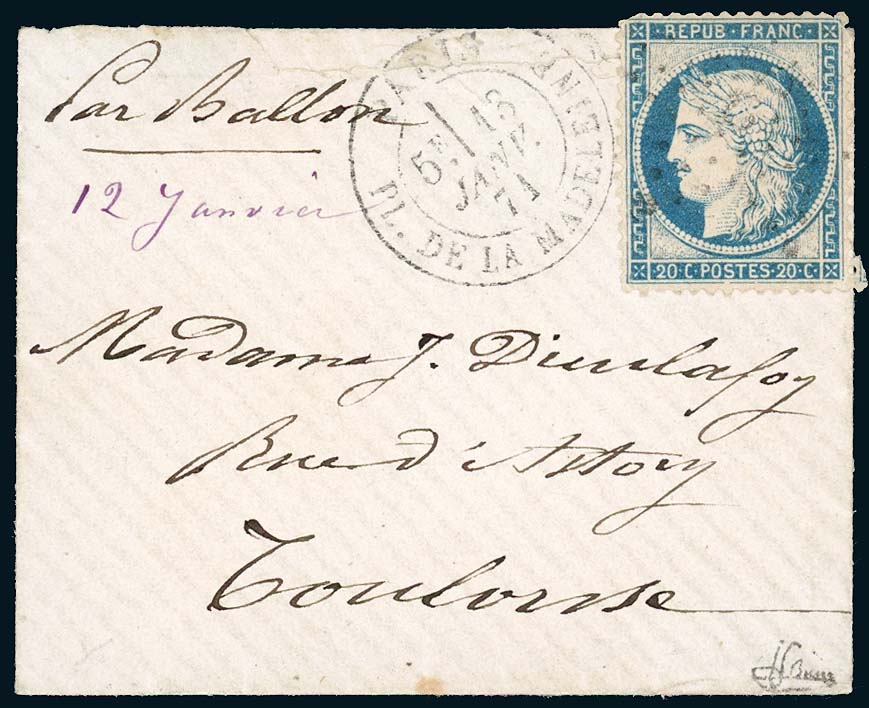 Par Ballon
12 Janvier
PARIS PL. DE LA MADELEINE
5E 13
JANV.
71
REPUB·FRANC·
20·C·POSTES·20·C·
Madame J. Dieulafoy
Rue d'Astory
Toulouse